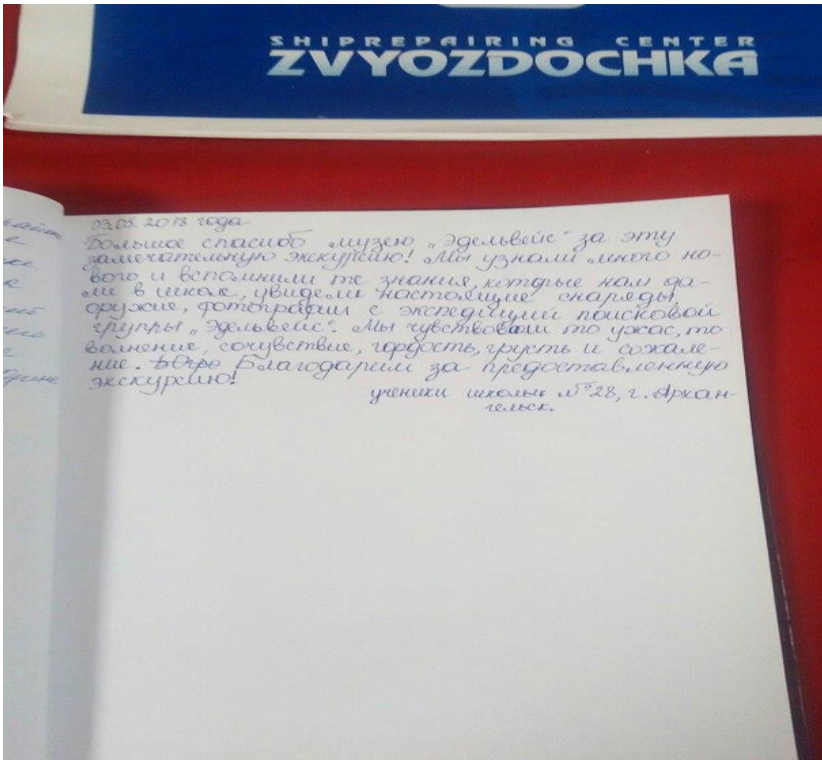 SHIPREPAIRING CENTER
ZVYOZDOCHKA
03.05.2013 года
Большое спасибо музею „Эдельвейс" за эту
замечательную экскурсию! Мы узнали много но-
вого и вспомнили те знания, которые нам да-
ли в школе, увидели настоящие снаряды,
оружие, фотографии с экспедиций поисковой
группы „Эдельвейс". Мы чувствовали то ужас, то
волнение, сочувствие, гордость, грусть и сожале-
ние. Благодарим за предоставленную
экскурсию!
ученики школы №28, г. Архан-
гельск.